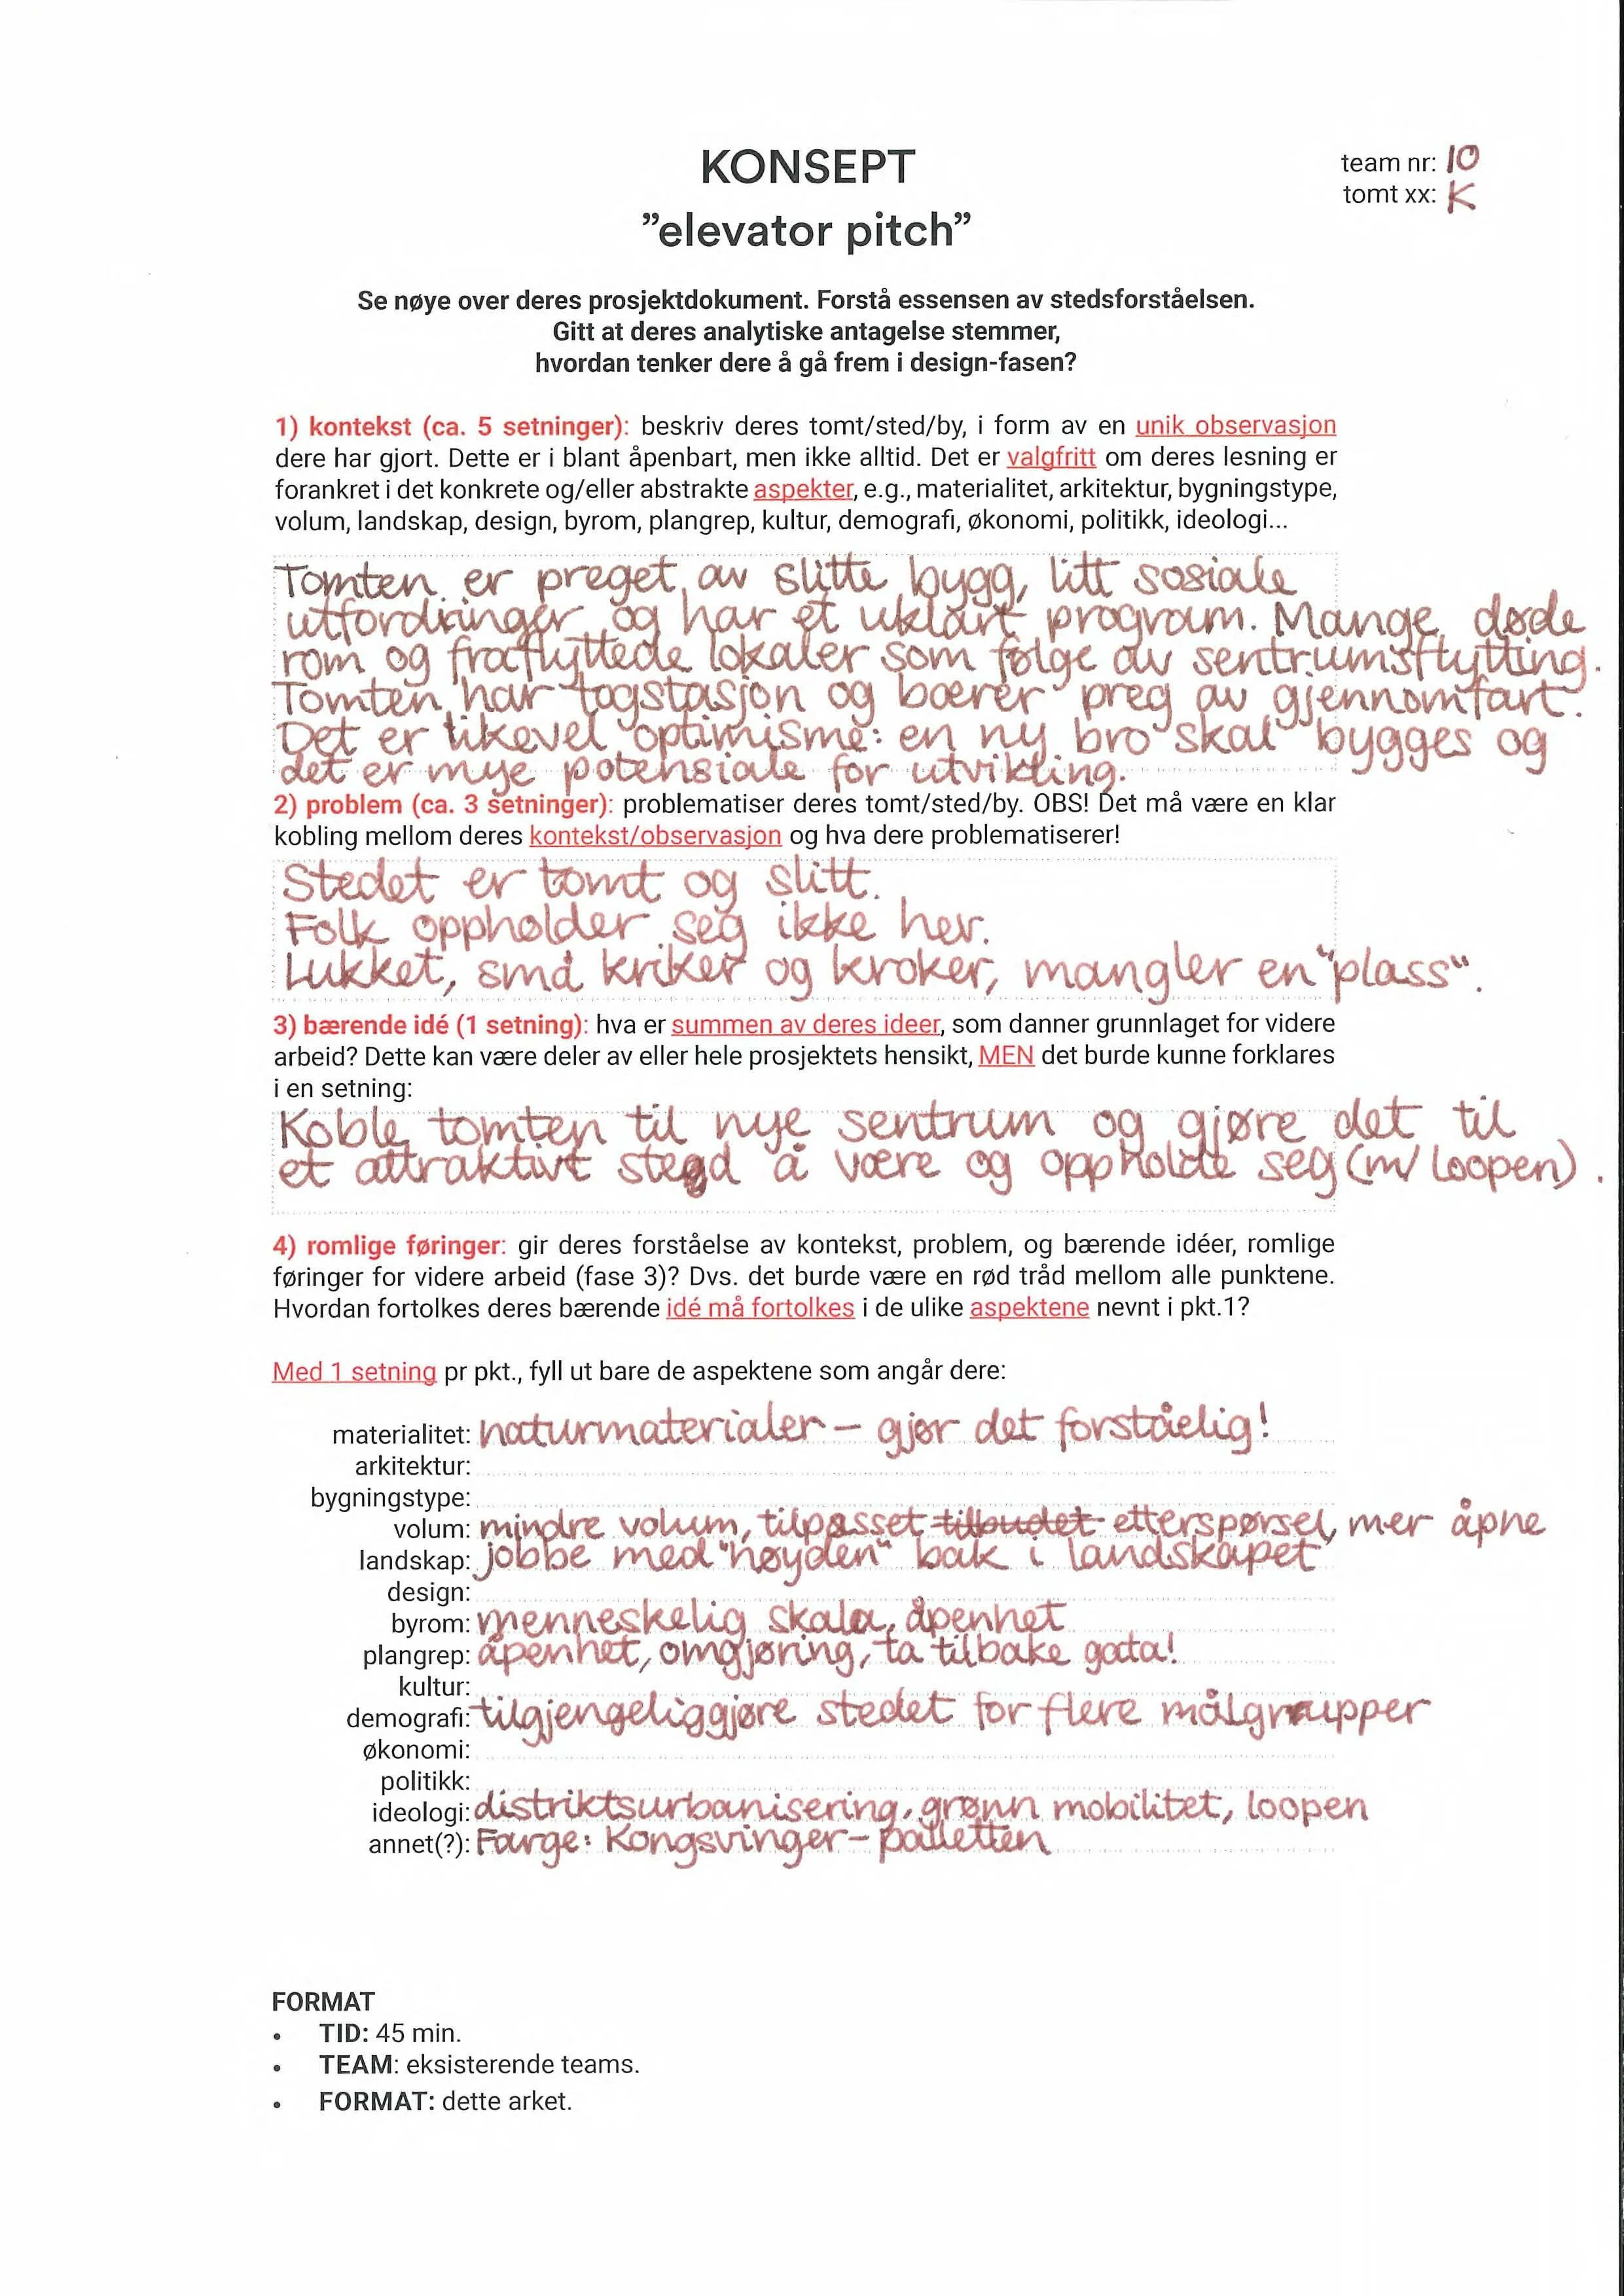 KONSEPT
"elevator pitch"
team nr: 10
tomt xx: K
Se nøye over deres prosjektdokument. Forstå essensen av stedsforståelsen.
Gitt at deres analytiske antagelse stemmer,
hvordan tenker dere å gå frem i design-fasen?
1) kontekst (ca. 5 setninger): beskriv deres tomt/sted/by, i form av en unik observasjon
dere har gjort. Dette er i blant åpenbart, men ikke alltid. Det er valgfritt om deres lesning er
forankret i det konkrete og/eller abstrakte aspekter, e.g., materialitet, arkitektur, bygningstype,
volum, landskap, design, byrom, plangrep, kultur, demografi, økonomi, politikk, ideologi...
Tomten er preget av slitte bygg, litt sosiale
utfordringer og har et uklart program. Mange døde
rom og fraflyttede lokaler som følge av sentrumsflytting.
Tomten har togstasjon og bærer preg av gjennomfart.
Det er likevel optimisme: en ny bro skal bygges og
det er mye potensiale for utvikling.
2) problem (ca. 3 setninger): problematiser deres tomt/sted/by. OBS! Det må være en klar
kobling mellom deres kontekst/observasjon og hva dere problematiserer!
Stedet er tomt og slitt.
Folk oppholder seg ikke her.
Lukket, små kriker og kroker, mangler en "plass".
3) bærende idé (1 setning): hva er summen av deres ideer, som danner grunnlaget for videre
arbeid? Dette kan være deler av eller hele prosjektets hensikt, MEN det burde kunne forklares
i en setning:
Koble tomten til nye sentrum og gjøre det til
et attraktivt sted å være og oppholde seg (m/ loopen).
4) romlige føringer: gir deres forståelse av kontekst, problem, og bærende idéer, romlige
føringer for videre arbeid (fase 3)? Dvs. det burde være en rød tråd mellom alle punktene.
Hvordan fortolkes deres bærende idé må fortolkes i de ulike aspektene nevnt i pkt.1?
Med 1 setning pr pkt., fyll ut bare de aspektene som angår dere:
materialitet: naturmaterialer – gjør det forståelig!
arkitektur:
bygningstype:
volum: mindre volum, tilpasset tilbudet etterspørsel, mer åpne
landskap: jobbe med "høyden" bak i landskapet
design:
byrom: menneskelig skala, åpenhet
plangrep: åpenhet, omgjøring, ta tilbake gata!
kultur:
demografi: tilgjengeliggjøre stedet for flere målgrupper
økonomi:
politikk:
ideologi: distriktsurbanisering, grønn mobilitet, loopen
annet(?): Farge: Kongsvinger-palletten
FORMAT
• TID: 45 min.
• TEAM: eksisterende teams.
• FORMAT: dette arket.